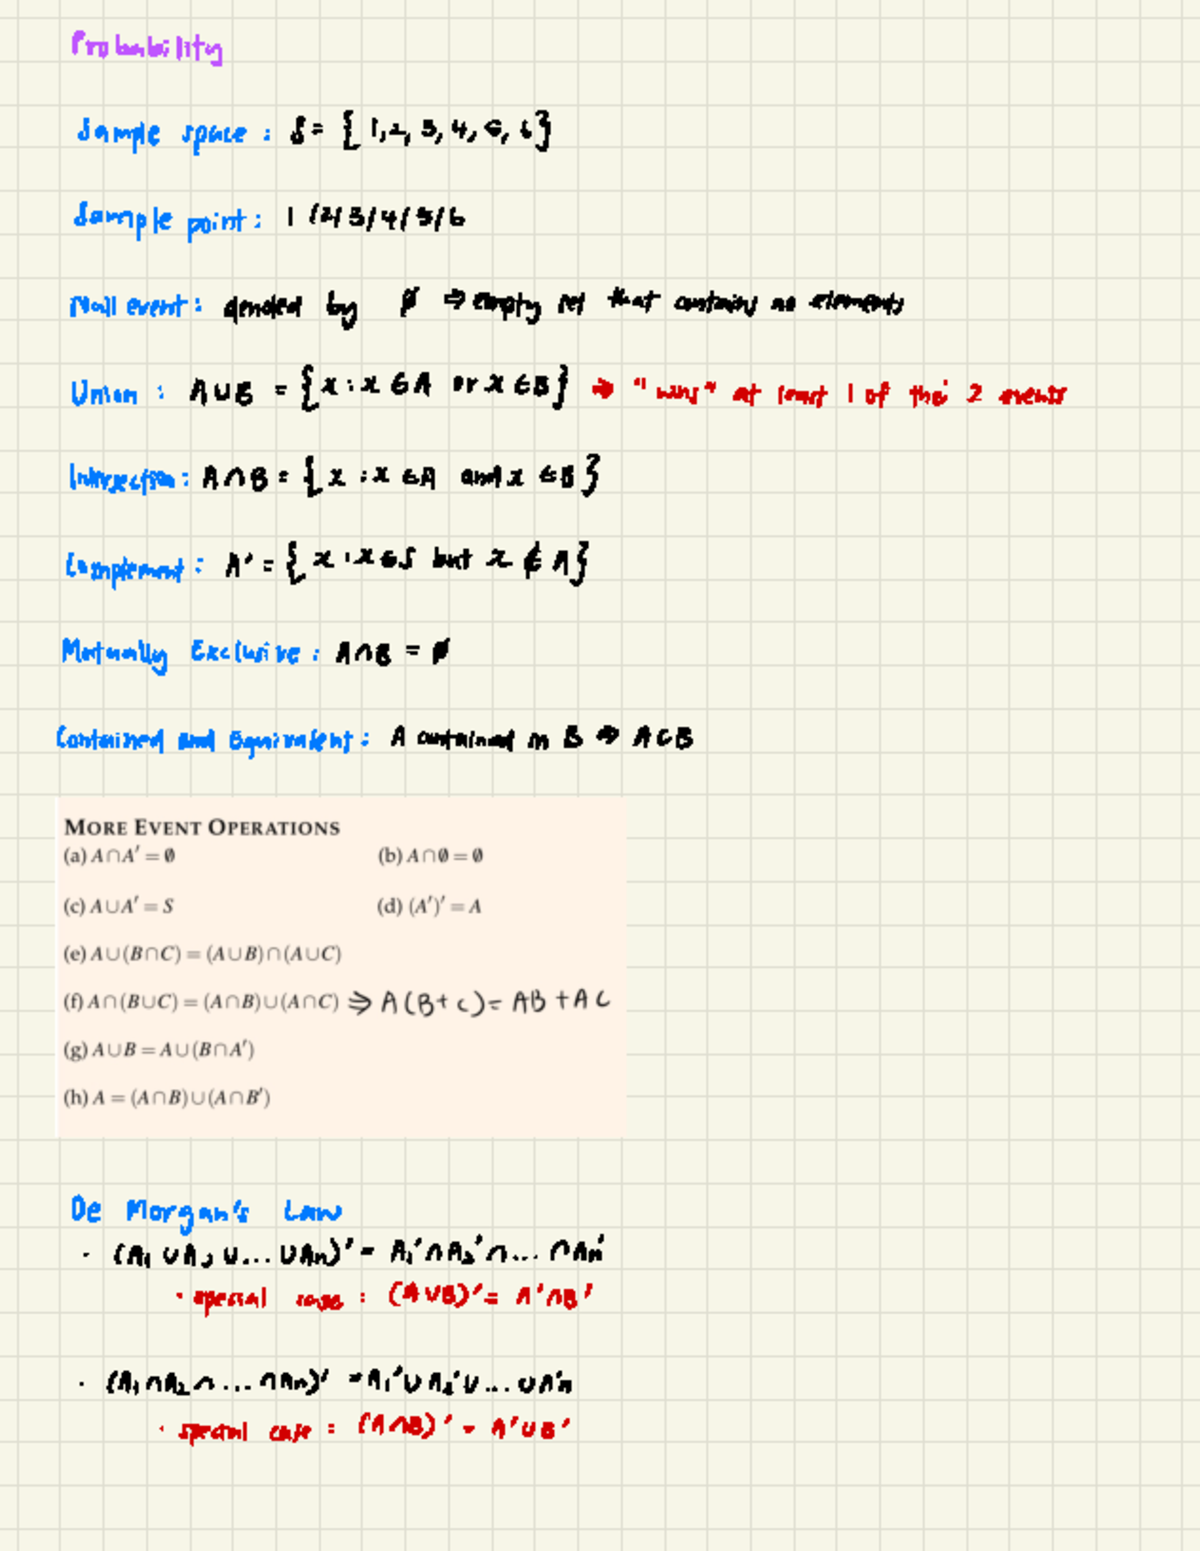 Probability
Sample space : S = { 1,2, 3, 4, 5, 6}
Sample point : 1 /2/ 3/4/5/6
Null event : denoted by ∅ ⇒ empty set that contains no elements
Union : A∪B = {x : x ∈ A or x ∈ B} ⇒ "wins" at least 1 of the 2 events
Intersection : A∩B = { x : x ∈A and x ∈ B }
Complement : A' = { x : x ∈ S but x ∉ A}
Mutually Exclusive : A∩B = ∅
Contained and Equivalent : A contained in B ⇒ A⊂B
MORE EVENT OPERATIONS
(a) A∩A′ = ∅ (b) A∩∅ = ∅
(c) A∪A′ = S (d) (A′)′ = A
(e) A∪(B∩C) = (A∪B)∩(A∪C)
(f) A∩(B∪C) = (A∩B)∪(A∩C) ⇒ A(B+C) = AB + AC
(g) A∪B = A∪(B∩A′)
(h) A = (A∩B)∪(A∩B′)
De Morgan's Law
· (A₁ ∪ A₂ ∪ ... ∪ Aₙ)' = A₁' ∩ A₂' ∩ ... ∩ Aₙ'
· special case : (A∪B)' = A'∩B'
· (A₁ ∩ A₂ ∩ ... ∩ Aₙ)' = A₁' ∪ A₂' ∪ ... ∪ A'ₙ
· special case : (A∩B)' = A'∪B'